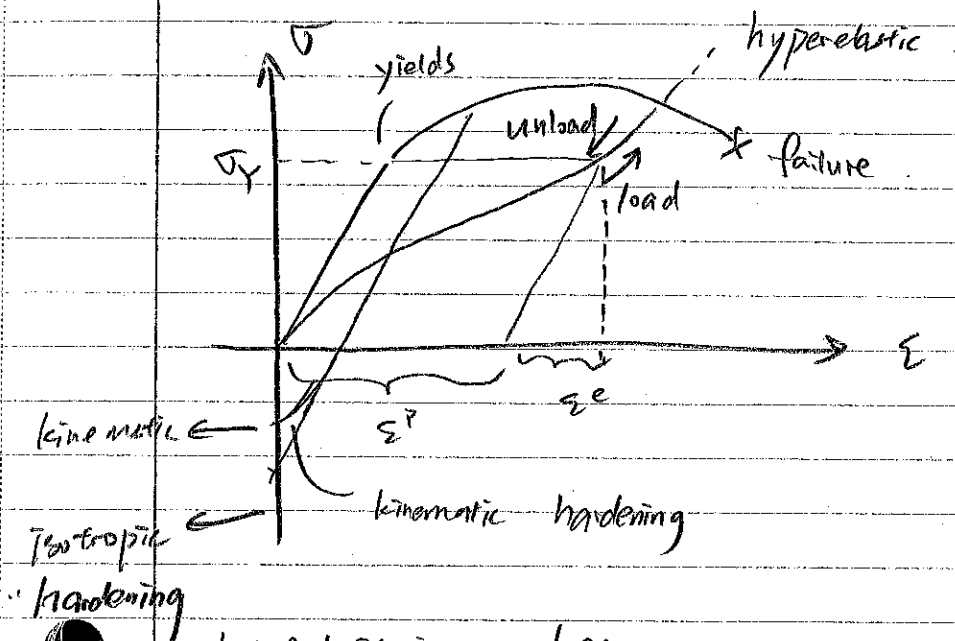 σ
hyperelastic
yields
unload
σY
failure
load
ε
εp
εe
kinematic
kinematic hardening
isotropic
hardening